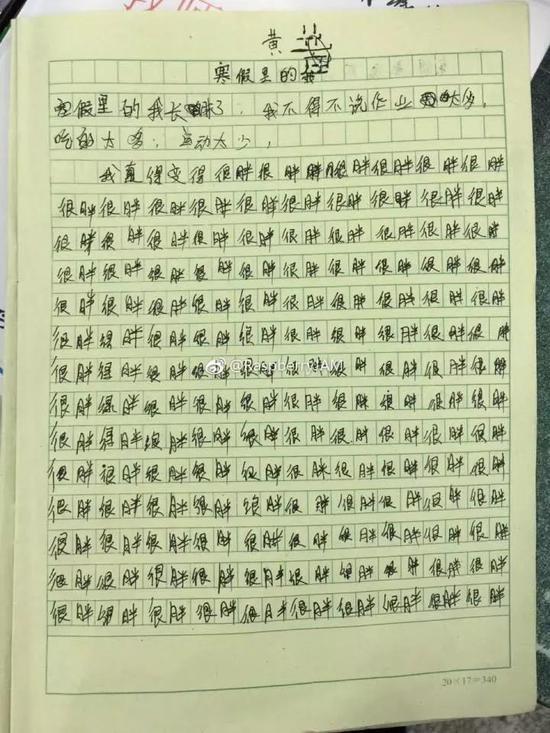 黄
寒假里的我
寒假里的我长胖了,我不得不说作业太少,
吃的太多,运动太少,
我真得变得很胖很胖很胖很胖很胖很胖很胖
很胖很胖很胖很胖很胖很胖很胖很胖很胖很胖
很胖很胖很胖很胖很胖很胖很胖很胖很胖很胖
很胖很胖很胖很胖很胖很胖很胖很胖很胖很胖
很胖很胖很胖很胖很胖很胖很胖很胖很胖很胖
很胖很胖很胖很胖很胖很胖很胖很胖很胖很胖
@RaspberryJAM
很胖很胖很胖很胖很胖很胖很胖很胖很胖很胖
很胖很胖很胖很胖很胖很胖很胖很胖很胖很胖
很胖很胖很胖很胖很胖很胖很胖很胖很胖很胖
很胖很胖很胖很胖很胖很胖很胖很胖很胖很胖
很胖很胖很胖很胖很胖很胖很胖很胖很胖很胖
很胖很胖很胖很胖很胖很胖很胖很胖很胖很胖
很胖很胖很胖很胖很胖很胖很胖很胖很胖很胖
很胖很胖很胖很胖很胖很胖很胖很胖很胖很胖
20×17=340